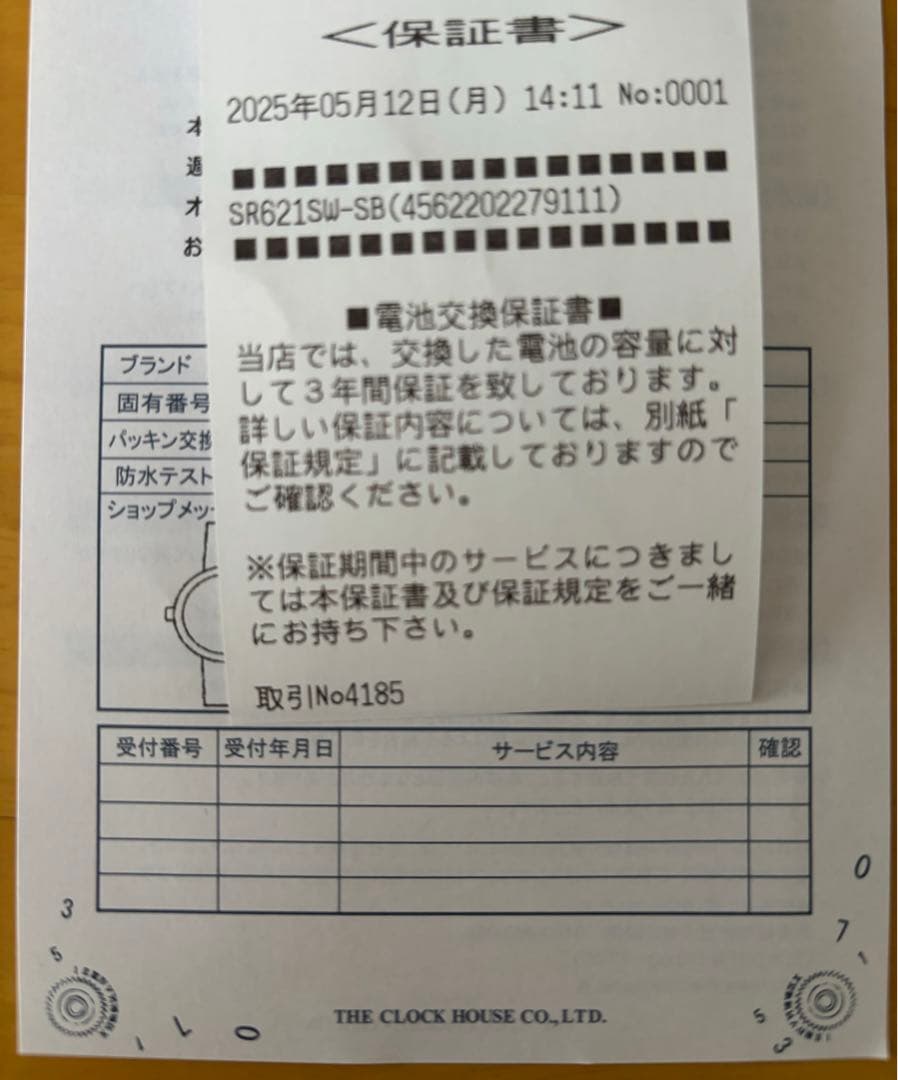 <保証書>
2025年05月12日(月) 14:11 No:0001
本
週
オ
お
■■■■■■■■■■■■■■■■
SR621SW-SB(4562202279111)
■■■■■■■■■■■■■■■■
■電池交換保証書■
当店では、交換した電池の容量に対
して3年間保証を致しております。
詳しい保証内容については、別紙「
保証規定」に記載しておりますので
ご確認ください。
※保証期間中のサービスにつきまし
ては本保証書及び保証規定をご一緒
にお持ち下さい。
取引No4185
ブランド
固有番号
パッキン交換
防水テスト
ショップメッ
受付番号 受付年月日 サービス内容 確認
3
5
1
1
0
0
7
1
5
3
THE CLOCK HOUSE CO.,LTD.